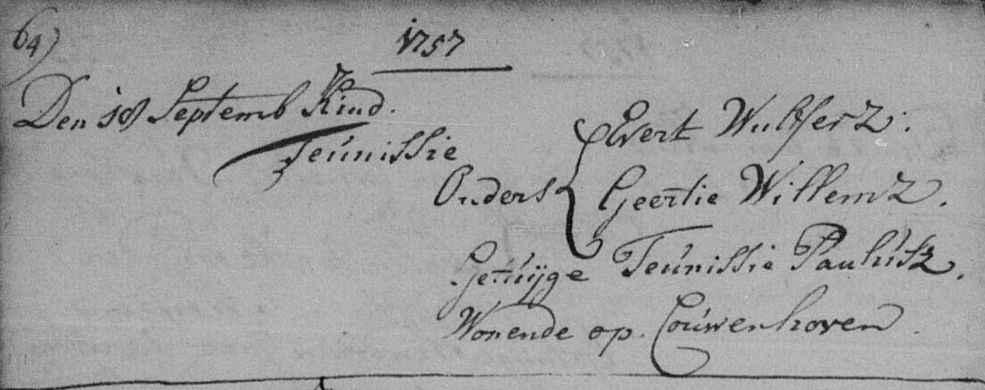 64)
1757
Den 18 Septemb Kind.
Teúnissie
Ouders
Evert Wulferz.
Geertie Willemz.
Getúijge Teúnissie Paulúsz.
Wonende op. Coúwenhoven.